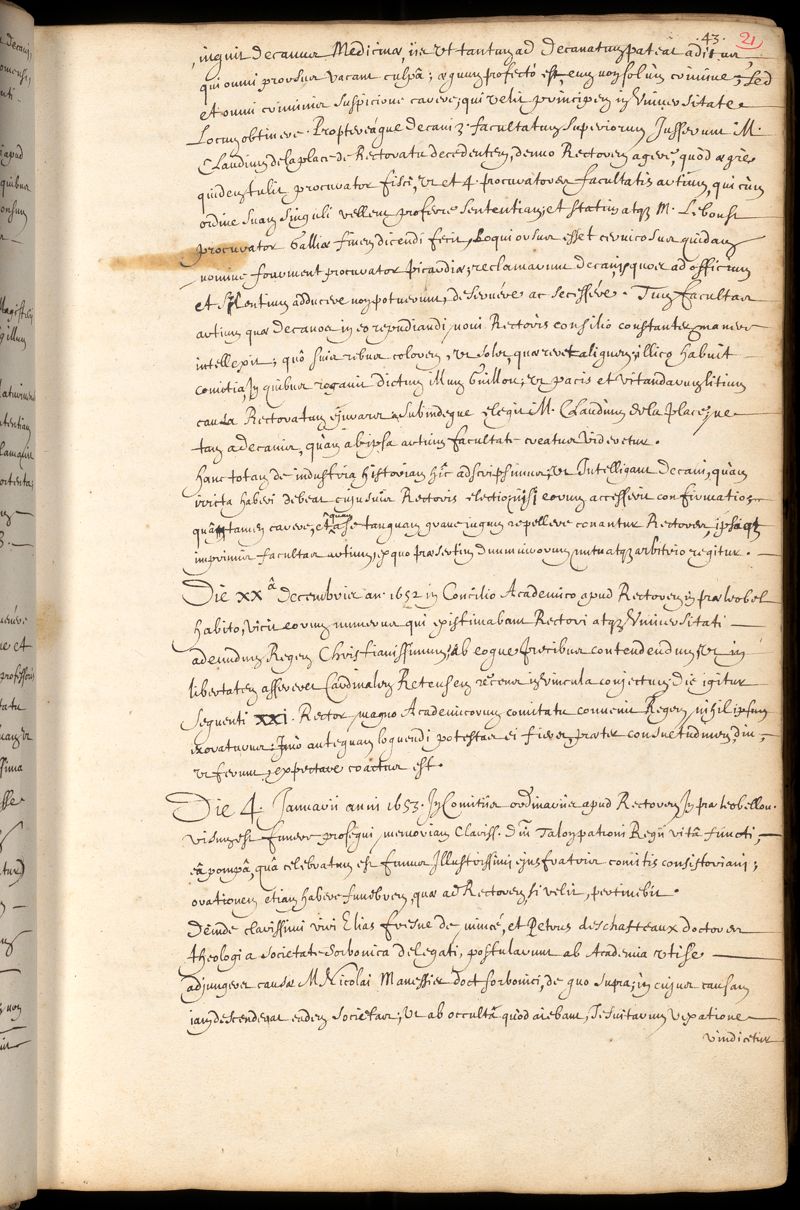 .43. 21
inquit decanus Medicinæ, iis ut tantum ad decanatum pateat aditus
qui omni prorsus vacant culpâ; æquum profectò est, eum non solùm crimine, sed
et omni criminis suspicione carere, qui velit princípem in Universitate
Locum obtinere. Proptereáque decani 3. facultatum superiorum Jusserunt M.
Claudium de la place de Rectoratu decedentem, denuo Rectorem agere, quòd ægre
quidem tulit procurator fisci, ut et 4. procuratores facultatis artium, qui cùm
ordine suam singuli vellent proferre sententiam, et statim atq; M. Lebourst
procurator Galliæ finem dicendi fecit, Loqui orsus esset cervico sus quidam
nomine fourment procurator picardiæ, reclamarunt decani, quos ad officium
et silentium adducere non potuerunt, deseruére ac secessére. Tum facultas
artium quæ decanos in eo repudiandi novi Rectoris consilio constanter manere
intellexit; quô suis rebus colorem, ut solet, quæreret aliquem, illico habuit
comitia, In quibus rogavit dictum illum Guillou, ut pacis et vitandarum litium
causa Rectoratum ejuraret, subindeque elegit M. Claudium de la place, ne
tam a decanis, quàm ab ipsa artium facultate creatus videretur.
Hanc totam de industria historiam hîc adscripsimus, ut Intelligant decani, quàm
irrita haberi debeat cujusvis Rectoris electio, nisi eorum accesserit confirmatio,
quam tamen cavere, et a se tanquam grave jugum repellere conantur Rectores, ipsaq;
imprimis facultas artium, ex quo præsertim dnummivorum nutu atq; arbitrio regitur.
Die XXâ decembris an. 1652 in Concilio Academico apud Rectorem in præleobel
habito, vicit eorum numerus qui existimabant Rectori atq; Universitati
adeundum Regem Christianissimum, ab eoque precibus contendendum, ut in
libertatem assereret Cardinalem Retensem recens in vincula conjectum. Die igitur
sequenti XXi. Rector magno Academicorum comitatu convenit Regem, nihil ipsum
exoraturus: Imò antequam loquendi potestas ei fieret, præter consuetudinem, diu,
ut ferunt, expectare coactus est.
Die 4. Januarii anni 1653. In Comitiis ordinariis apud Rectorem In præleobellon.
visum est funere prosequi memoriam Clariss. D.ni Talon patroni Regii vitâ functi,
eâ pompâ, quâ celebratum est funus Illustrissimi ejus fratris comitis consistoriani;
orationem etiam habere funebrem, quæ ad Rectorem, si velit, pertinebit.
Deinde clarissimi viri Elias fresne de mincé, et Petrus deschasteaux doctores
theologi a societate Sorbonica delegati, postularunt ab Academia ut ise
adjungeret causæ M. Nicolai Manessier doct. sorbonici, de quo supra; in cujus causam
jam descenderat eadem societas; ut ab occultâ quòd aiebant, Jesuitarum vexatione
vindicetur